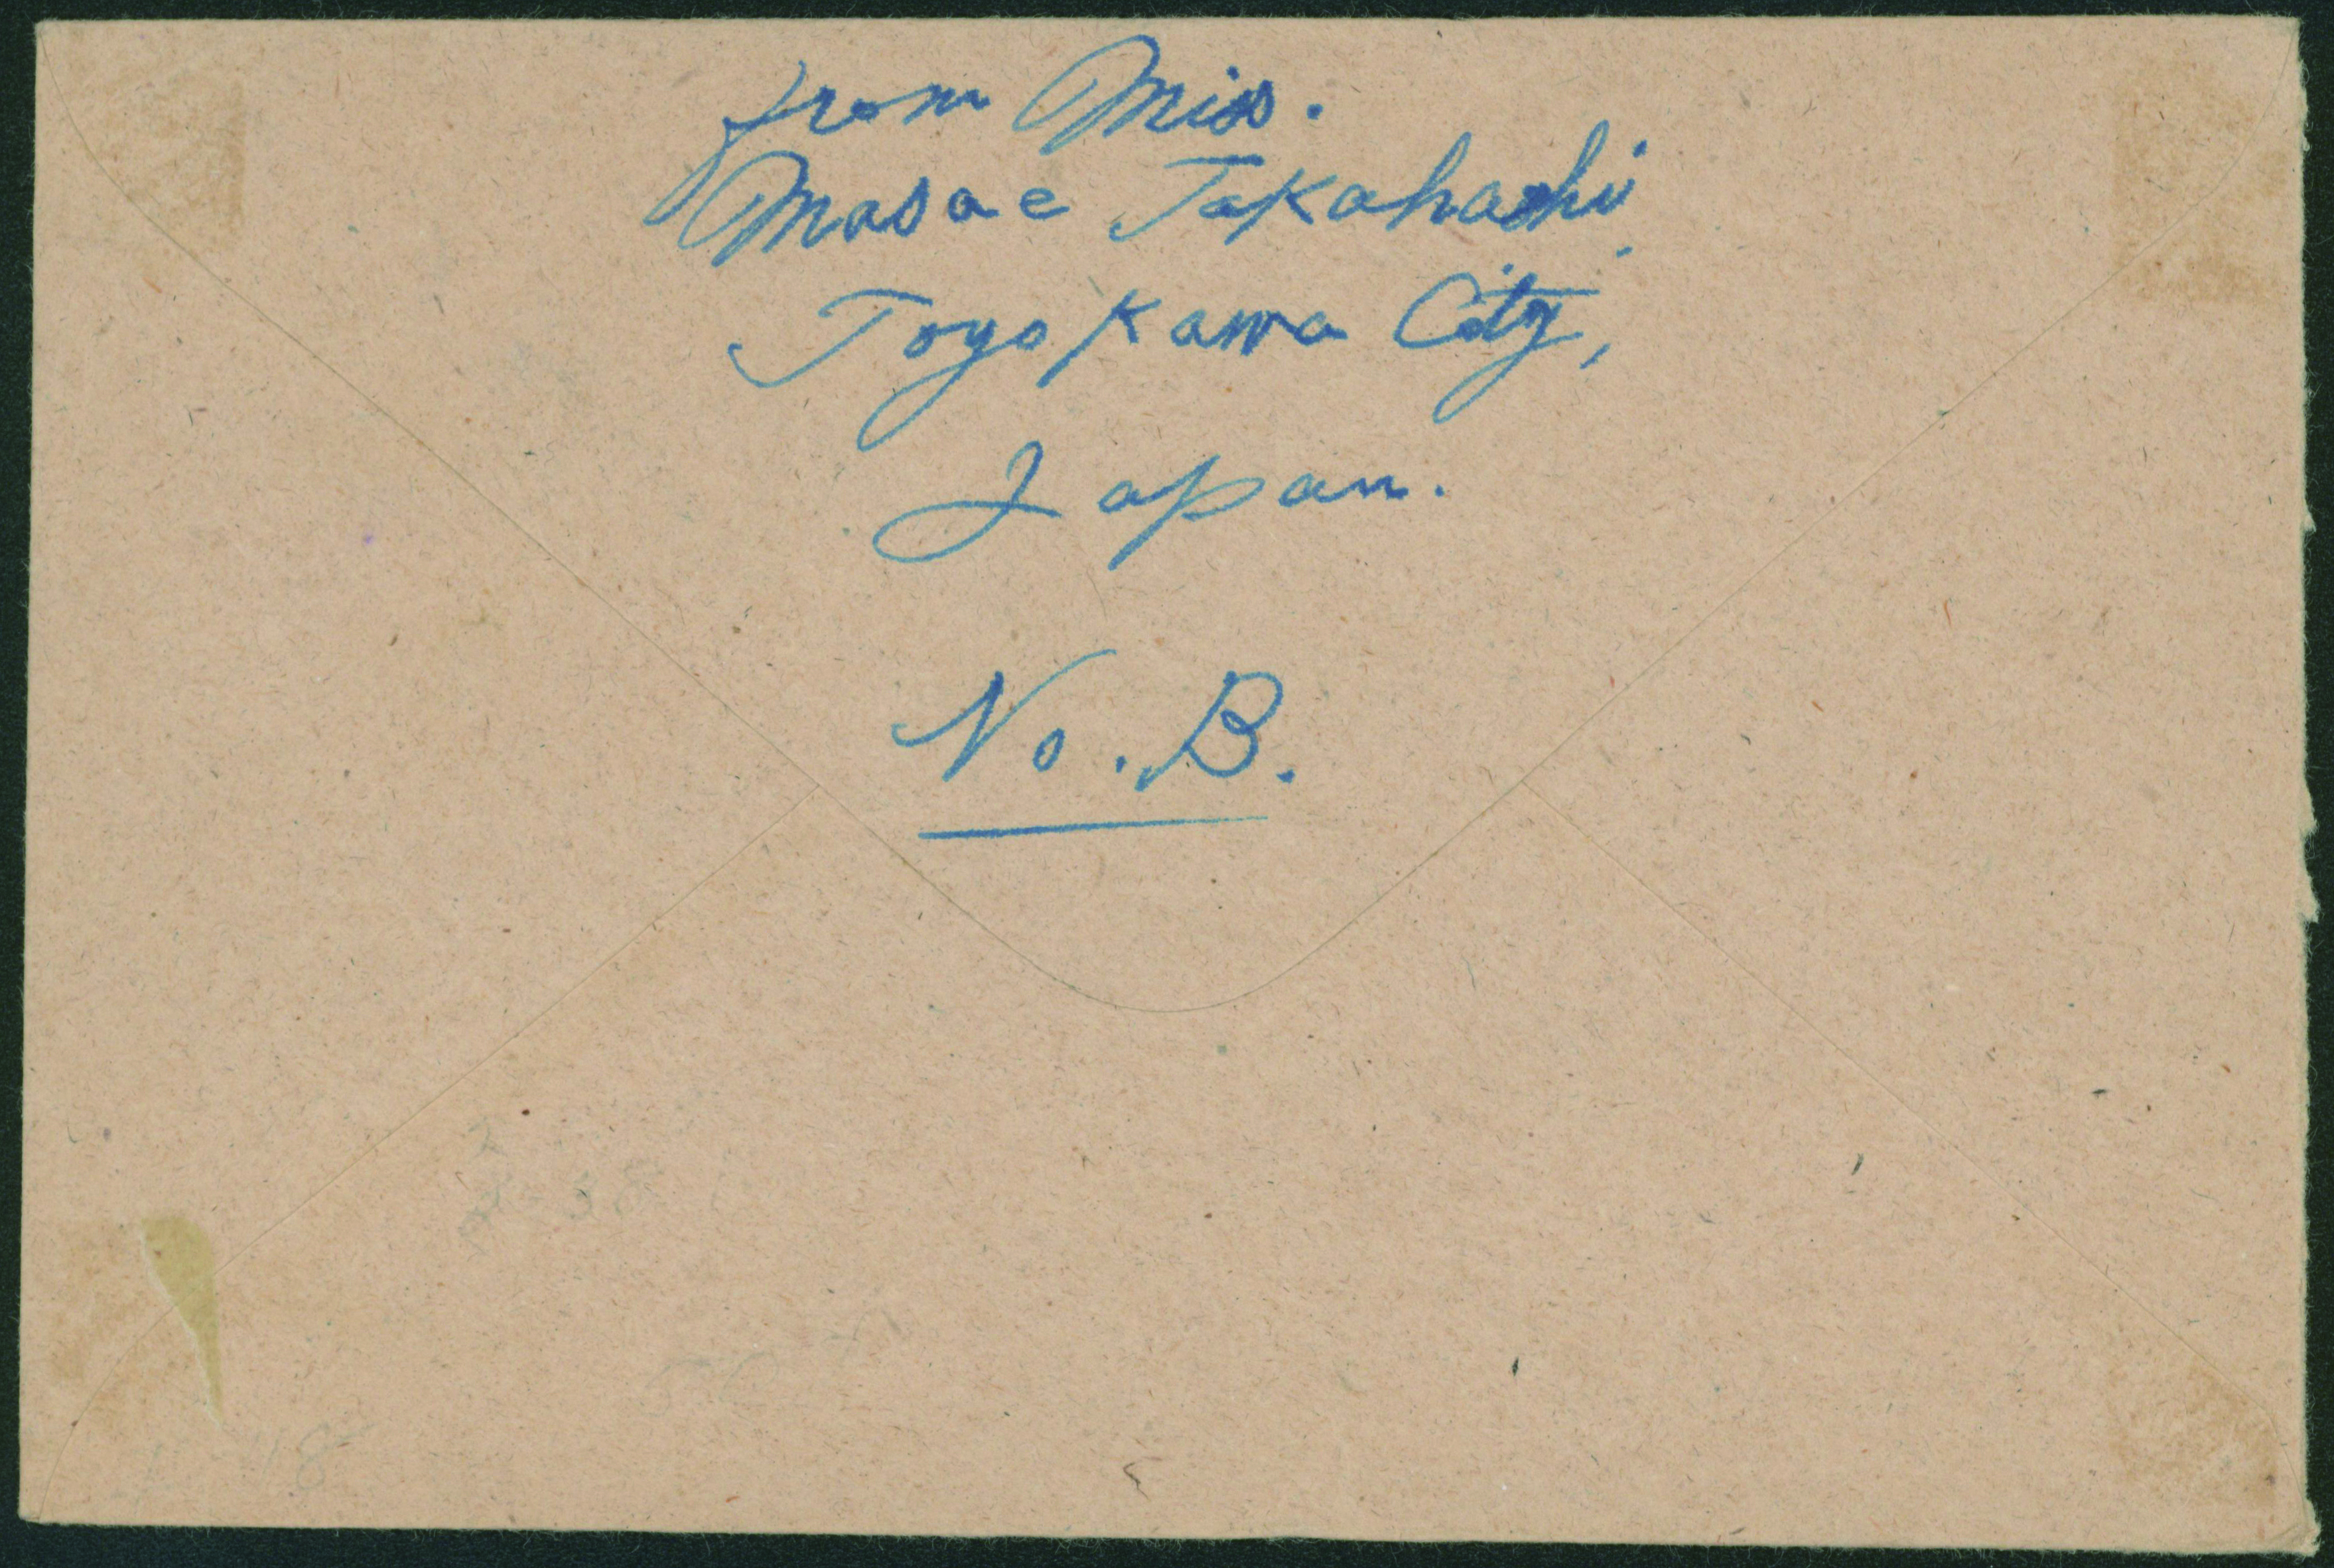 from Miss.
Masae Takahashi,
Toyokawa City,
Japan.
No. B.